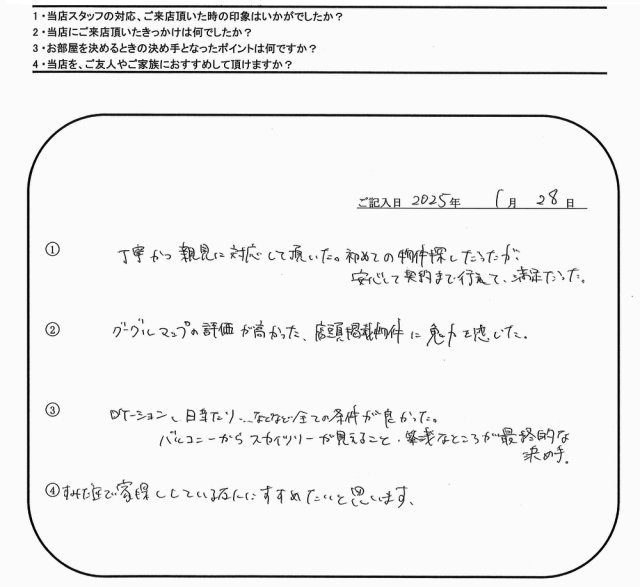 1・当店スタッフの対応、ご来店頂いた時の印象はいかがでしたか？
2・当店にご来店頂いたきっかけは何でしたか？
3・お部屋を決めるときの決め手となったポイントは何ですか？
4・当店を、ご友人やご家族におすすめして頂けますか？
ご記入日 2025年 1月 28日
① 丁寧かつ親身に対応して頂いた。初めての物件探しだったが、
安心して契約まで行えて、満足だった。
② グーグルマップの評価が高かった、店頭掲載物件に魅力を感じた。
③ ロケーション、日当たり…などなど全ての条件が良かった。
バルコニーからスカイツリーが見えること・築浅なところが最終的な
決め手。
④ で家探ししている友人にすすめたいと思います、